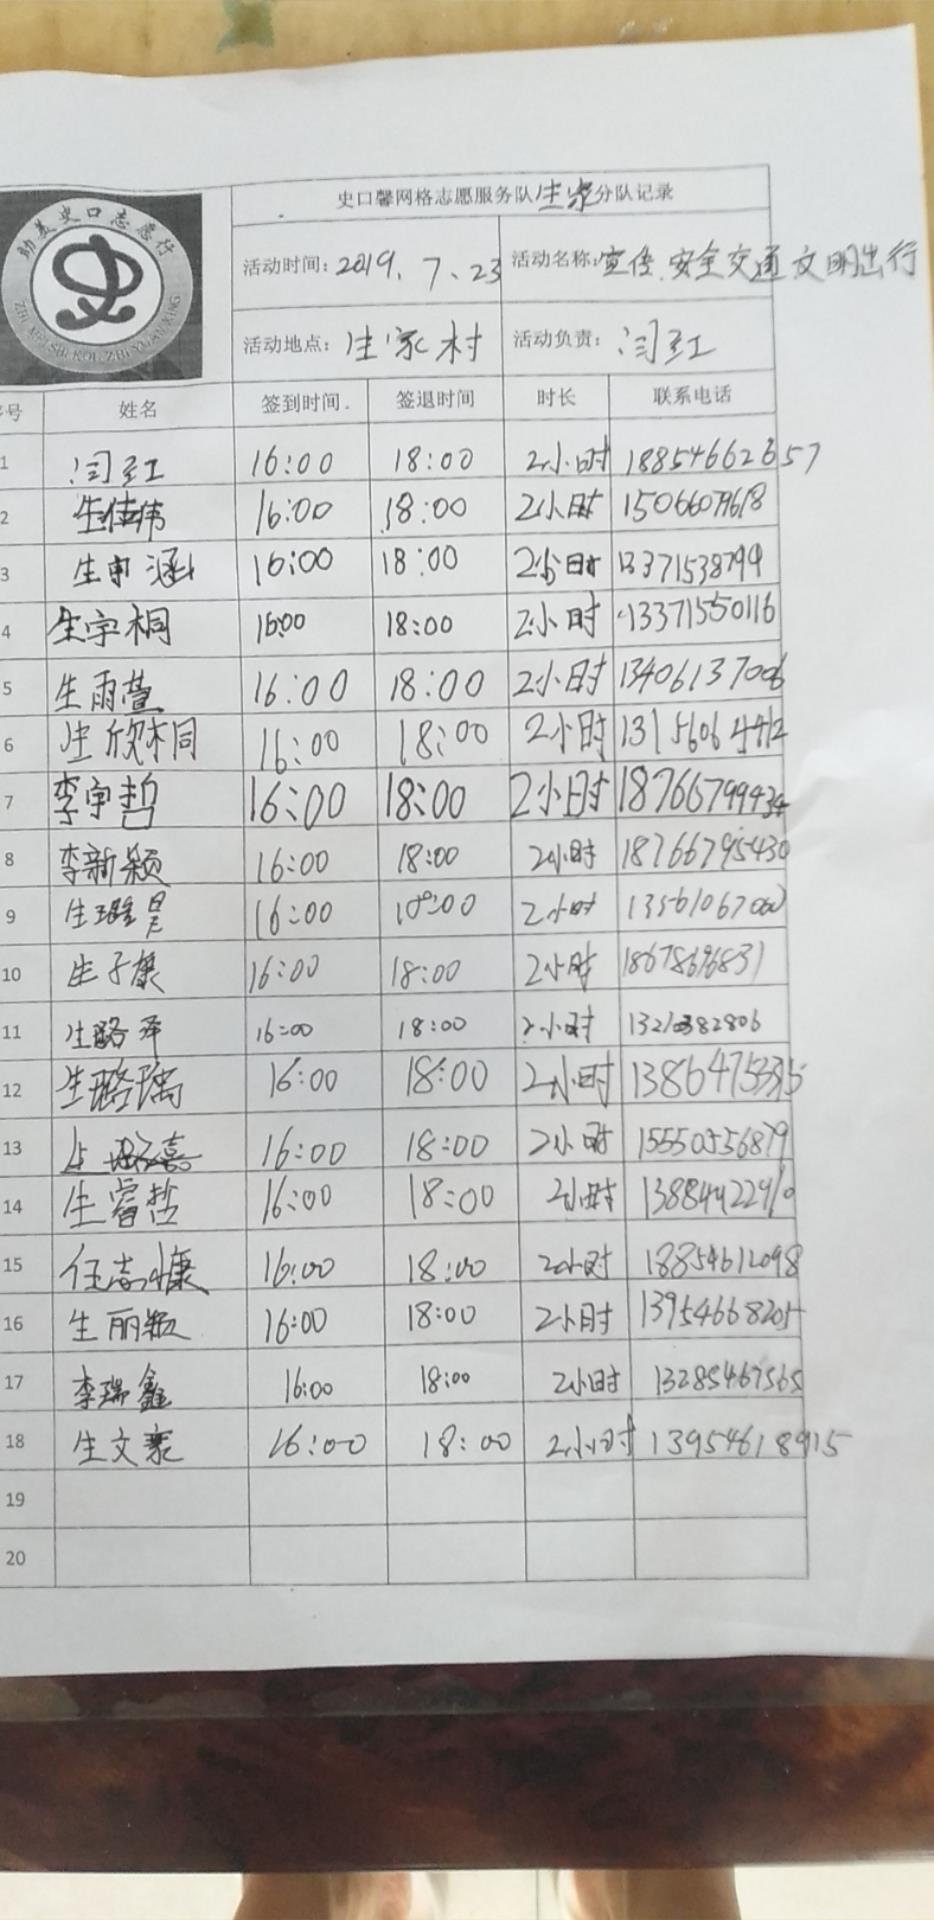 助美史口志愿行
ZHU MEI SHI KOU ZHI YUAN XING
史口馨网格志愿服务队生家分队记录
活动时间：2019.7.23 活动名称：宣传.安全交通文明出行
活动地点：生家村 活动负责：闫红
序号 姓名 签到时间. 签退时间 时长 联系电话
1 闫红 16:00 18:00 2小时 18854662657
2 生佳伟 16:00 18:00 2小时
3 生申涵 16:00 18:00 2小时 13371538799
4 生宇桐 16:00 18:00 2小时 13371550116
5 生雨萱 16:00 18:00 2小时 13406137006
6 生欣桐 16:00 18:00 2小时 13156064412
7 李宇哲 16:00 18:00 2小时
8 李新颖 16:00 18:00 2小时 18766795430
9 16:00 18:00 2小时
10 生子康 16:00 18:00 2小时 18678696831
11 生路平 16:00 18:00 2小时
12 生璐瑀 16:00 18:00 2小时 13864753335
13 16:00 18:00 2小时 15550556879
14 生睿哲 16:00 18:00 2小时
15 任志慷 16:00 18:00 2小时 18854612098
16 生丽颖 16:00 18:00 2小时 13954668205
17 李瑞鑫 16:00 18:00 2小时 13285467565
18 生文豪 16:00 18:00 2小时 13954618915
19
20